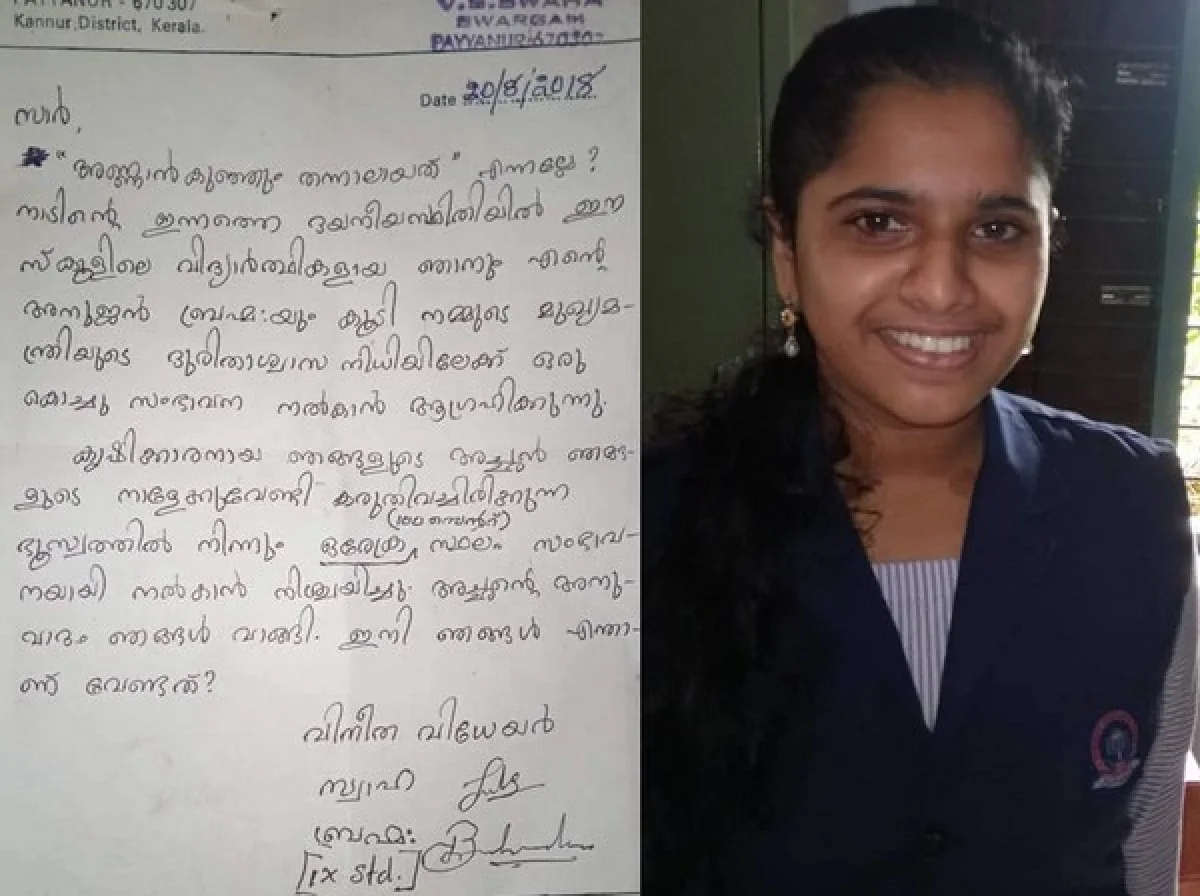 Kannur District, Kerala.
SWARGAM
PAYYANUR-670307
Date 20/8/2018
സാർ,
"അണ്ണാൻകുഞ്ഞും തന്നാലായത്" എന്നല്ലേ?
നാടിന്റെ ഇന്നത്തെ ദയനീയസ്ഥിതിയിൽ ഈ
സ്കൂളിലെ വിദ്യാർത്ഥികളായ ഞാനും എന്റെ
അനുജൻ ബ്രഹ്മ:യും കൂടി നമ്മുടെ മുഖ്യമ-
ന്ത്രിയുടെ ദുരിതാശ്വാസ നിധിയിലേക്ക് ഒരു
കൊച്ചു സംഭാവന നൽകാൻ ആഗ്രഹിക്കുന്നു.
കൃഷിക്കാരനായ ഞങ്ങളുടെ അച്ഛൻ ഞങ്ങ-
ളുടെ നാളേക്കുവേണ്ടി കരുതിവച്ചിരിക്കുന്ന
(100 സെൻറ്)
ഭൂസ്വത്തിൽ നിന്നും ഒരേക്ര സ്ഥലം സംഭാവ-
നയായി നൽകാൻ നിശ്ചയിച്ചു. അച്ഛന്റെ അനു-
വാദം ഞങ്ങൾ വാങ്ങി. ഇനി ഞങ്ങൾ എന്താ-
ണ് വേണ്ടത്?
വിനീത വിധേയർ
സ്വാഹ
ബ്രഹ്മ:
[IX Std.]